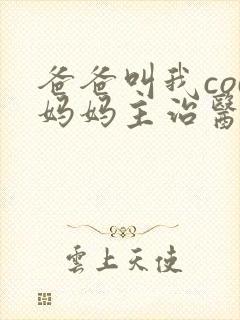 爸爸叫我co
妈妈主治醫
雲上天使